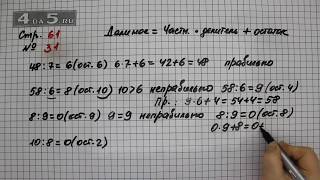 4 da 5.ru
Стр. 61
№ 31
Делимое = Частн. · делитель + остаток
48:7=6(ост.6) 6·7+6=42+6=48 правильно
58:6=8(ост.10) 10>6 неправильно 58:6=9(ост.4)
Пр.: 9·6+4=54+4=58
8:9=0(ост.9) 9=9 неправильно 8:9=0(ост.8)
0·9+8=0+
10:8=0(ост.2)